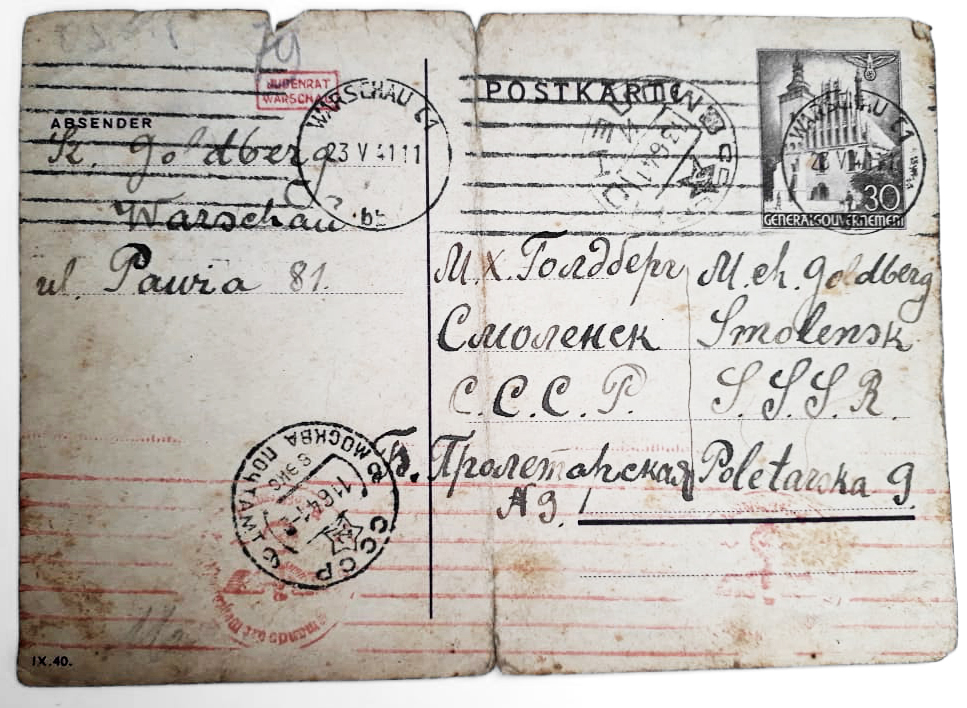 JUDENRAT
WARSCHAU
ABSENDER
Sz. Goldberg
Warschau
ul. Pawia 81.
WARSCHAU C1
23 V 41 11
POSTKARTE
WARSCHAU C1
23 V 41 11
30
GENERALGOUVERNEMENT
М. Х. Голдберг
Смоленск
С.С.С.Р.
Б. Пролетарская
Д 9.
M. Ch. Goldberg
Smolensk
S.S.S.R.
Poletarska 9
МОСКВА ПОЧТАМТ
6 ЭКС
11641
СССР
IX.40.